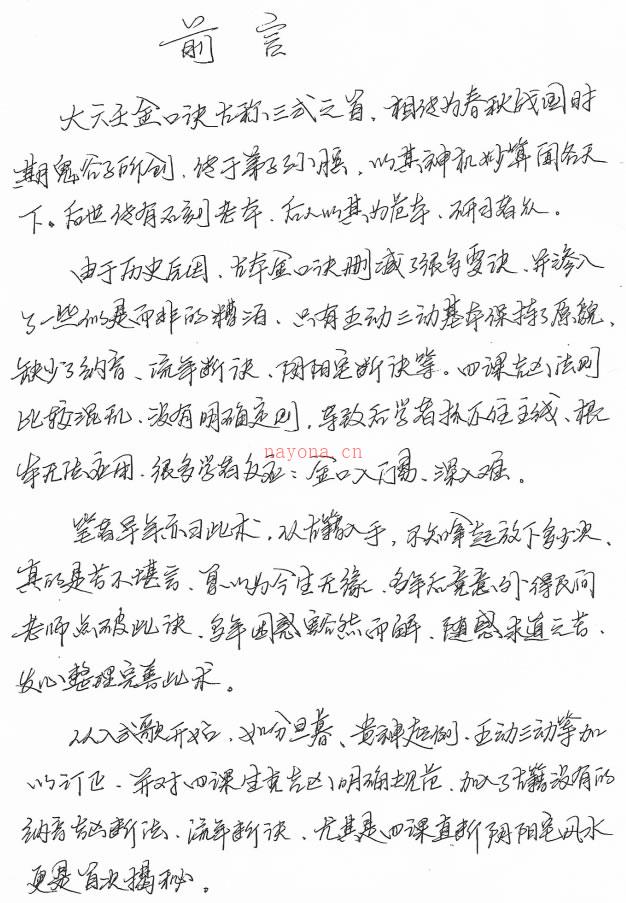 前言
大六壬金口诀古称三式之首，相传为春秋战国时
期鬼谷子所创，传于弟子孙膑，以其神机妙算闻名天
下。后世传有石刻老本，后人以其为范本，研习者众。
由于历史原因，古本金口诀删减了很多要诀，并渗入
了一些似是而非的糟泊，只有五动三动基本保持了原貌，
缺少了纳音、流年断诀、阴阳宅断诀等。四课吉凶法则
比较混乱，没有明确定则，导致后学者抓不住主线、根
本无法应用，很多学者反应：金口入门易、深入难。
nayona.cn
笔者早年亦习此术，从古籍入手，不知拿起放下多少次，
真的是苦不堪言，自以为今生无缘，多年后竟意外得民间
老师点破此诀，多年困惑豁然而解，随感求道之苦，
发心整理完善此术。
从入式歌开始，如分旦暮、贵神起例、五动三动等加
以订正，并对四课生克吉凶明确规范，加入了古籍没有的
纳音吉凶断法、流年断诀，尤其是四课直断阴阳宅风水
更是首次揭秘。